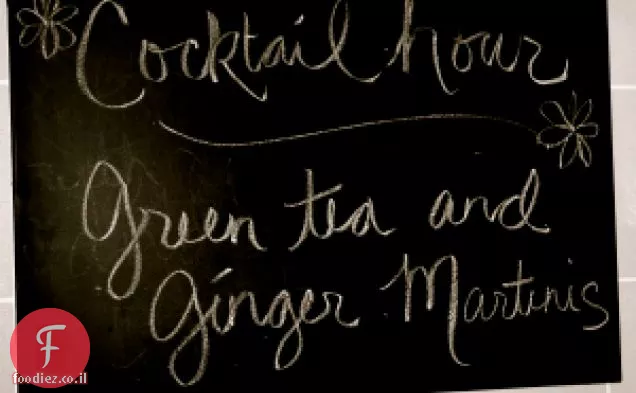 Cocktail hour
Green tea and
Ginger Martinis
F
foodiez.co.il